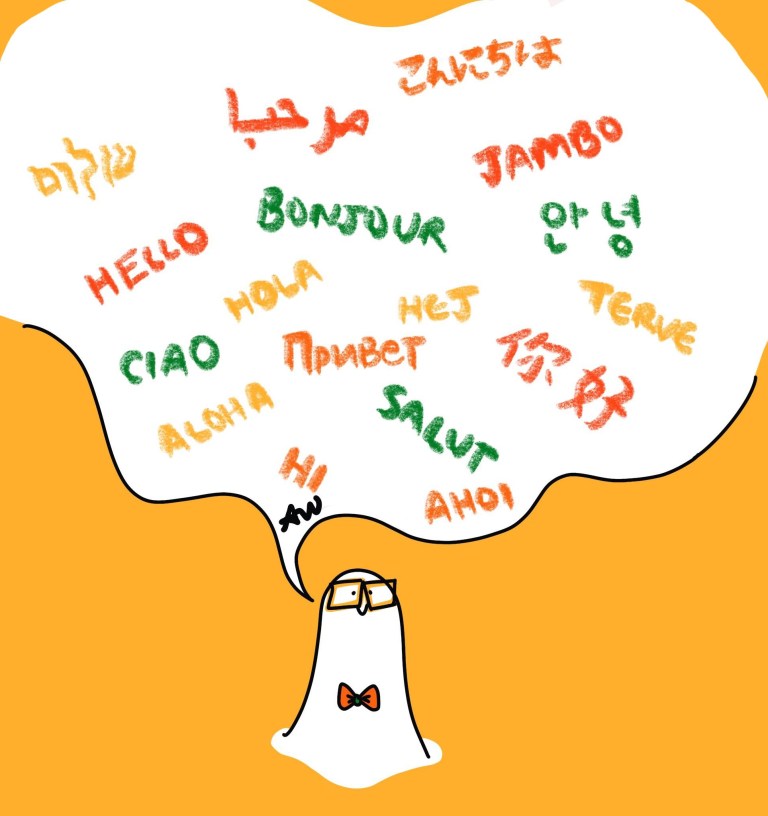 こんにちは
مرحبا
JAMBO
שלום
BONJOUR
안녕
HELLO
HOLA
HEJ
TERVE
CIAO
Привет
你好
ALOHA
SALUT
HI
AHOI
AW